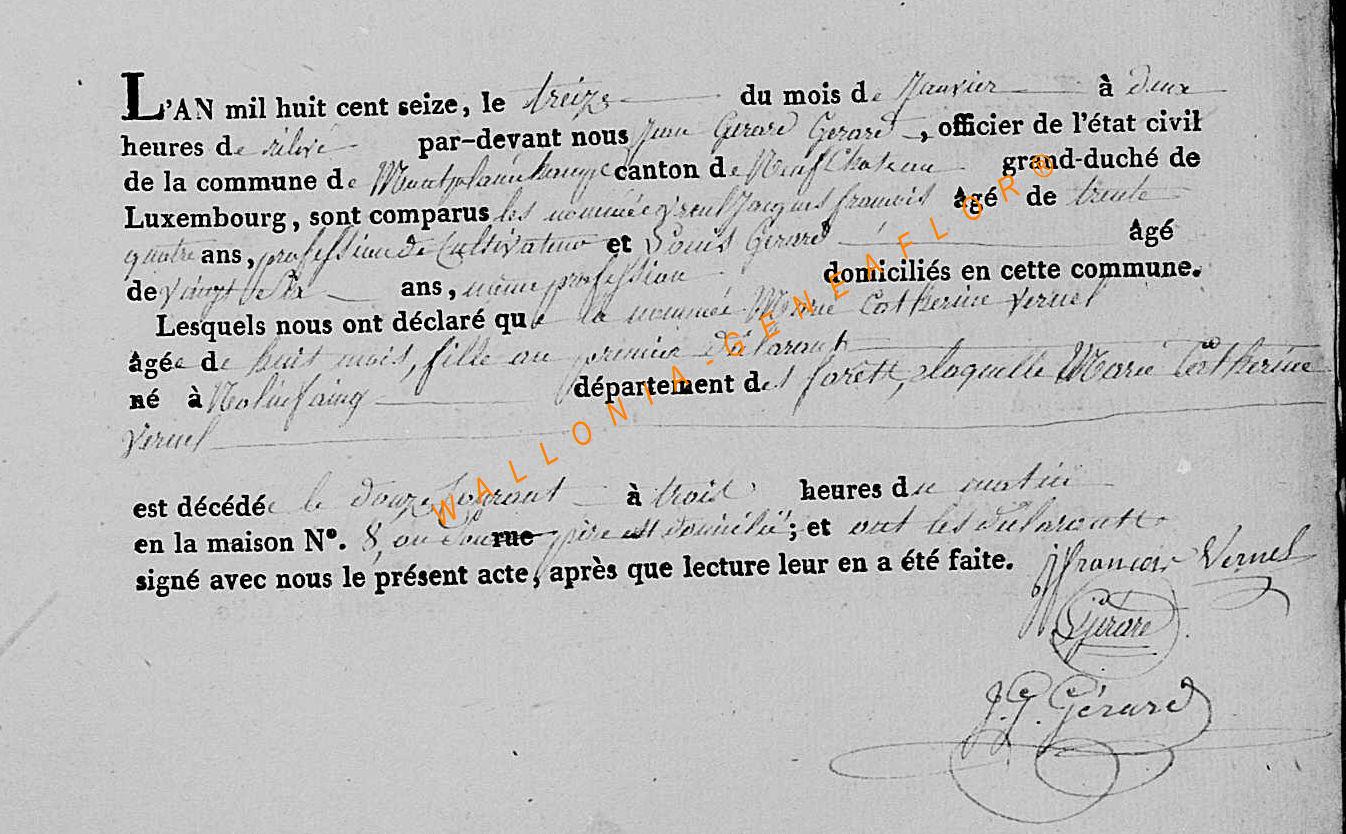 L'AN mil huit cent seize, le treize du mois de Janvier à deux
heures de relevé par-devant nous Jean Gerard Gerard, officier de l'état civil
de la commune de canton de Neufchateau grand-duché de
Luxembourg, sont comparus les nommé Vernel Jacques françois âgé de trente
quatre ans, profession de Cultivateur et Louis Gerard âgé
de vingt six ans, même profession domiciliés en cette commune.
Lesquels nous ont déclaré que la nommée Marie Catherine Vernel
âgée de huit mois, fille au premier déclarant
né à Molinfaing département des forêts, laquelle Marie Catherine
Vernel
est décédée le douze Courant à trois heures du matin
en la maison N°. 8, ou Son rue père est domicilié; et ont les déclarants
signé avec nous le présent acte, après que lecture leur en a été faite.
jjfrancois Vernel
Gerard
J. G. Gérard
WALLONIA-GENEAFLOR®